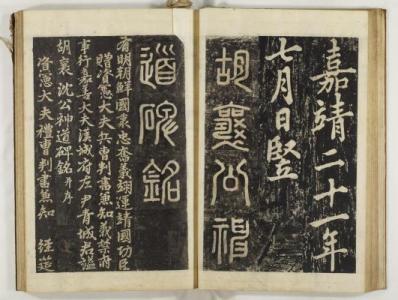 嘉靖二十一年
七月日竪
胡襄公神
道碑銘
有明朝鮮國秉忠奮義翊運靖國功臣
贈資憲大夫兵曹判書兼知義禁府
事行嘉善大夫漢城府左尹青城君謚
胡襄沈公神道碑銘并序
資憲大夫禮曹判書兼知 經筵